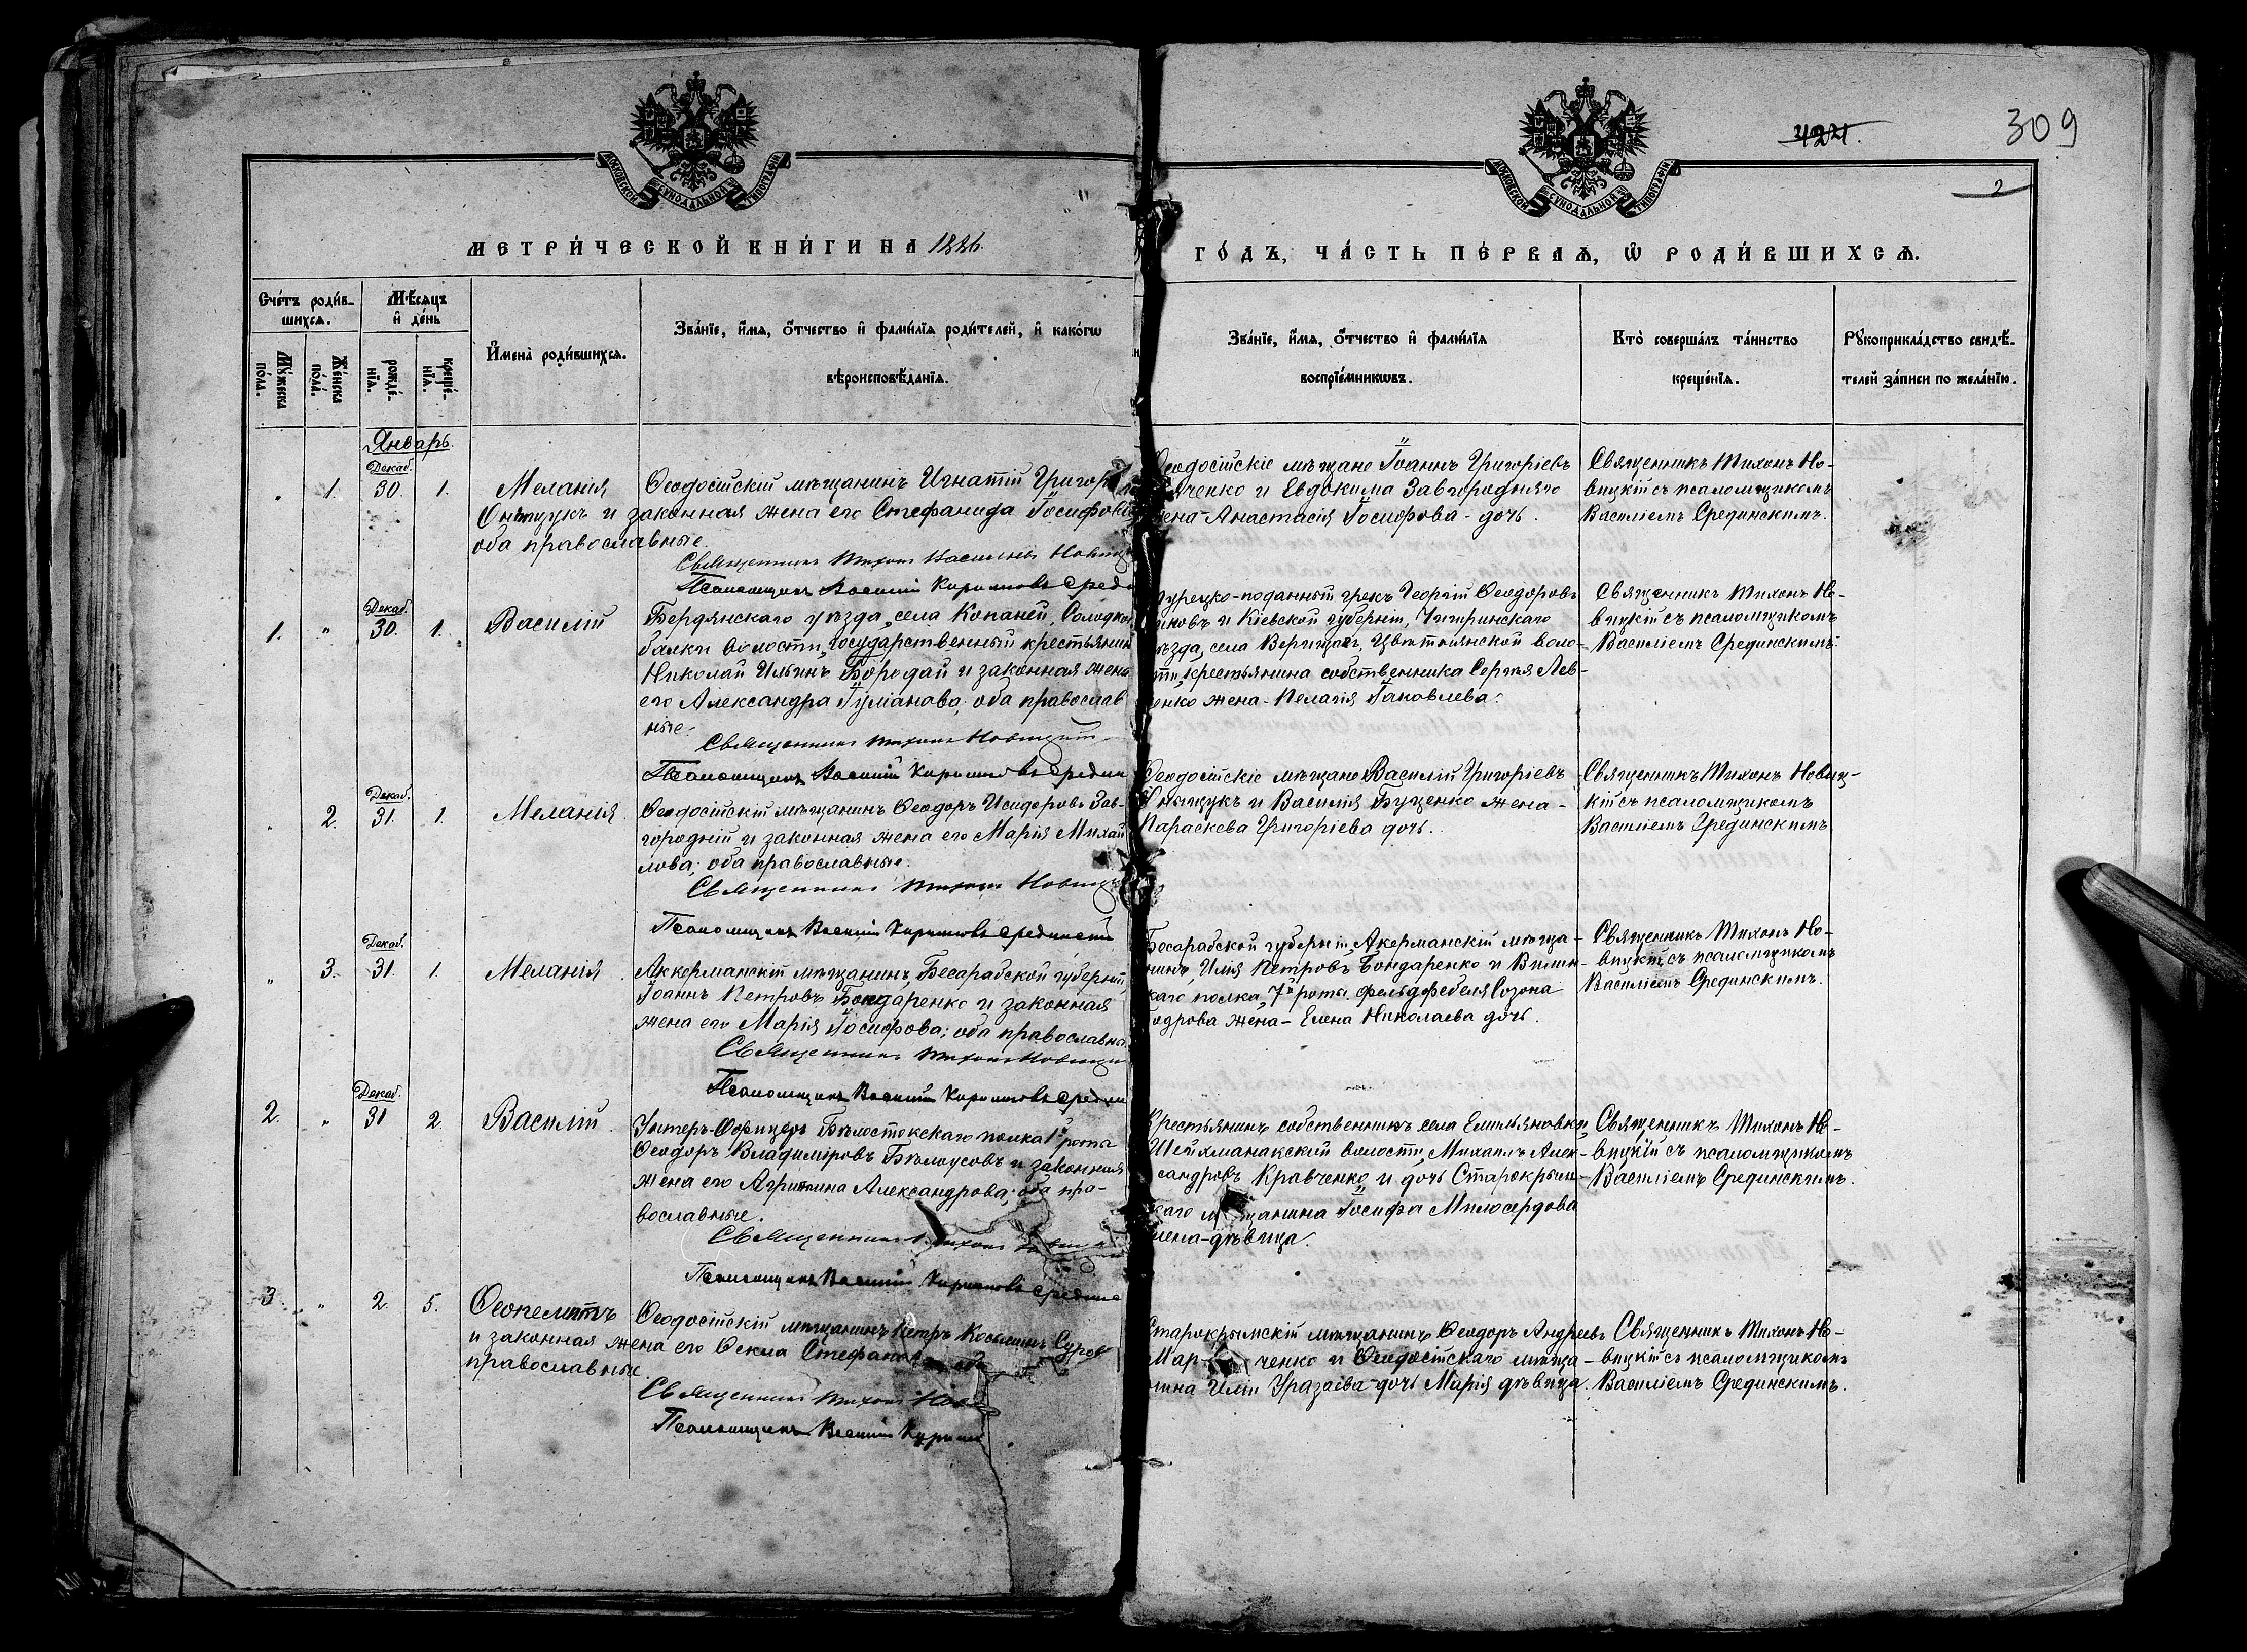 МОСКОВСКОЙ СУНОДАЛЬНОЙ ТИПОГРАФІИ
МОСКОВСКОЙ СУНОДАЛЬНОЙ ТИПОГРАФІИ
424.
309
2
МЕТРИ́ЧЕСКОЙ КНИ́ГИ НА 1886
ГО́ДЪ, ЧА́СТЬ ПЕ́РВАѦ, Ѡ РОДИ́ВШИХСѦ.
Сче́тъ роди́в-
шихсѧ.
Мѣ́сѧцъ
и҆ де́нь
Мꙋ́жеска
по́ла.
Же́нска
по́ла.
рожде́-
нїѧ.
креще́-
нїѧ.
И҆мена̀ роди́вшихсѧ.
Зва́нїе, и҆́мѧ, ѻ҆́тчество и҆ фами́лїѧ роди́телей, и҆ како́гѡ
вѣроисповѣ́данїѧ.
Зва́нїе, и҆́мѧ, ѻ҆́тчество и҆ фами́лїѧ
воспрїе́мникѡвъ.
Кто̀ соверша́лъ та́инство
креще́нїѧ.
Рꙋкоприкла́дство свидѣ́-
телей за́писи по жела́нїю.
Январь.
Декаб.
" 1. 30. 1. Меланія
Ѳеодосійскій мѣщанинъ Игнатій Григор
Онищукъ и законная жена его Стефанида Іосифова
оба православные.
Священникъ Тихонъ Васильевъ Новиц
Псаломщикъ Василій Середи
Ѳеодосійскіе мѣщане Іоаннъ Григоріевъ
ченко и Евдокима Завгородняго
жена Анастасія Іосифова дочь.
Священникъ Тихонъ Но-
вицкій съ псаломщикомъ
Василіемъ Срединскимъ.
Декаб.
1. " 30. 1. Василій
Бердянскаго уѣзда, села Копаней,
балки волости, государственный крестьянин
Николай Ильинъ Бородай и законная жена
его Александра оба православ
ные.
Священникъ Тихонъ Новицкій
Псаломщикъ Василій Средин
Турецко-поданный грекъ Георгій Ѳеодоровъ
новъ и Кіевской губерніи, Чигиринскаго
уѣзда, села Цвѣтнянской воло-
сти, крестьянина собственника Сергѣя Лев-
ченко жена Пелагія Іаковлева.
Священникъ Тихонъ Но-
вицкій съ псаломщикомъ
Василіемъ Срединскимъ.
Декаб.
" 2. 31. 1. Меланія.
Ѳеодосійскій мѣщанинъ Ѳеодоръ Исидоровъ Зав-
городній и законная жена его Марія Михай
лова; оба православные.
Священникъ Тихонъ Новицк
Псаломщикъ Василій Срединскій
Ѳеодосійскіе мѣщане Василій Григоріевъ
Онищукъ и Василія Буценко жена-
Параскева Григоріева дочь.
Священникъ Тихонъ Новиц-
кій съ псаломщикомъ
Василіемъ Срединскимъ
Декаб.
" 3. 31. 1. Меланія.
Аккерманскій мѣщанинъ, Бесарабской губерніи
Іоаннъ Петровъ Бондаренко и законная
жена его Марія Іосифова; оба православны.
Священникъ Тихонъ Новицки
Псаломщикъ Василій Средин
Бесарабской губерніи, Акерманскій мѣща-
нинъ, Илія Петровъ Бондаренко и Вилен-
скаго полка, 7й роты фельдфебеля Созона
дрова жена- Елена Николаева дочь.
Священникъ Тихонъ Но-
вицкій съ псаломщикомъ
Василіемъ Срединскимъ.
Декаб.
2. " 31 2. Василій.
Унтеръ-Офицеръ Бѣлостокскаго полка 1й роты
Ѳеодоръ Владиміровъ Бѣлоусовъ и законная
жена его Агрипина Александрова; оба пра-
вославные.
Священникъ Тихонъ
Псаломщикъ Василій Средине
Крестьянинъ собственникъ села Емильяновки,
Шейхманакский волости, Михаилъ Алек-
сандровъ Кравченко и дочь Старокрым-
скаго мѣщанина Іосифа Милосердова
Елена-дѣвица.
Священникъ Тихонъ Но-
вицкій съ псаломщикомъ
Василіемъ Срединскимъ.
3 " 2. 5. Ѳеопемптъ
Ѳеодосійскій мѣщанинъ Петръ Косьминъ Суров
и законная жена его Ѳекла Стефанова оба
православные.
Священникъ Тихонъ Нов
Псаломщикъ Василій
Старокрымскій мѣщанинъ Ѳеодоръ Андреевъ
Мар ченко и Ѳеодосійскаго мѣща-
нина Иліи Уразаева дочь Марія дѣвица.
Священникъ Тихонъ Но-
вицкій съ псаломщикомъ
Василіемъ Срединскимъ.